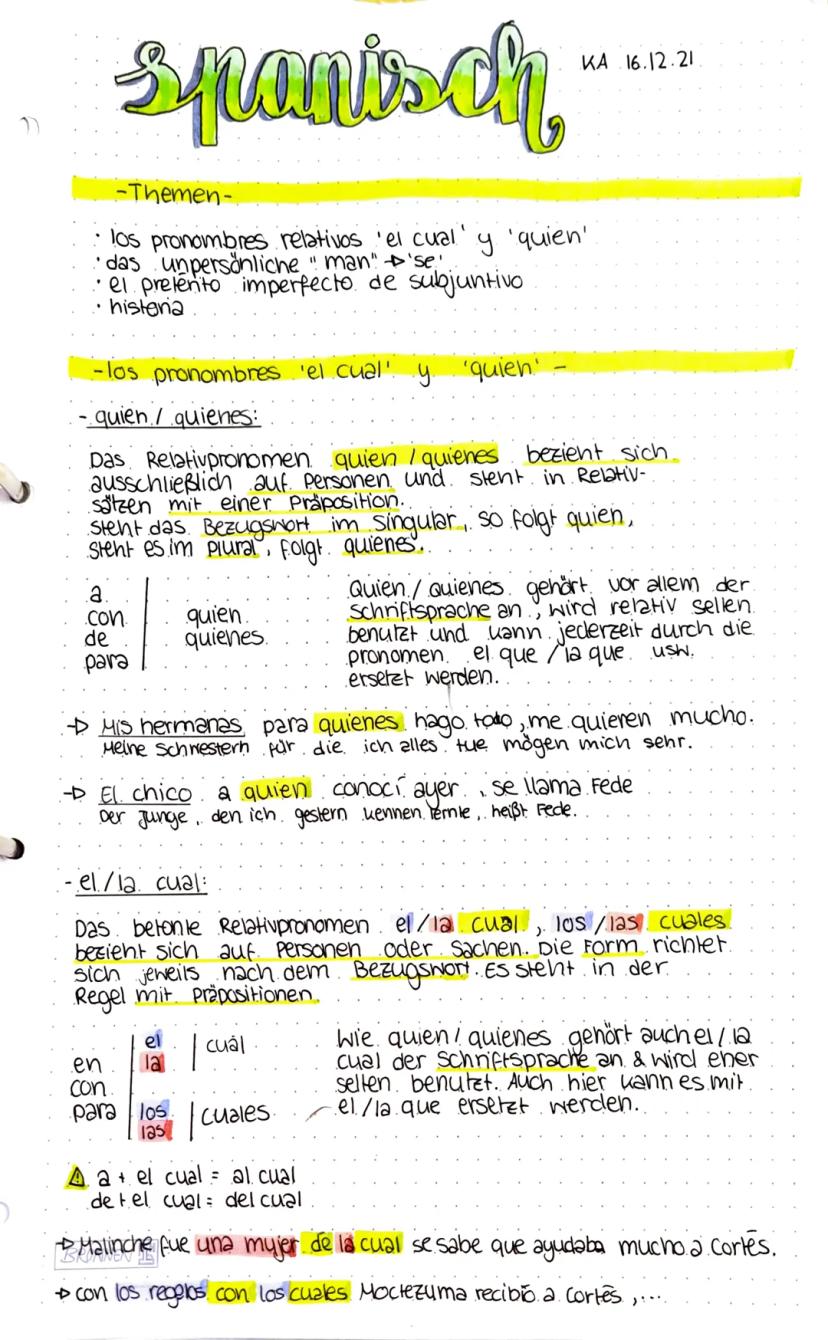 spanisch KA 16.12.21
-Themen-
· los pronombres relativos 'el cual' y 'quien'
· das unpersönliche "man" → 'se'
· el pretérito imperfecto de subjuntivo
· historia
-los pronombres 'el cual' y 'quien' -
- quien / quienes:
Das Relativpronomen quien / quienes bezieht sich
ausschließlich auf Personen und steht in Relativ-
sätzen mit einer Präposition.
steht das Bezugswort im Singular, so folgt quien,
steht es im Plural, folgt quienes.
a
con
de
para
quien
quienes
Quien / Quienes gehört vor allem der
Schriftsprache an, wird relativ selten
benutzt und kann jederzeit durch die
pronomen el que / la que usw.
ersetzt werden.
→ Mis hermanas para quienes hago todo, me quieren mucho.
Meine Schwestern für die ich alles tue mögen mich sehr.
→ El chico a quien conocí ayer, se llama Fede
Der Junge, den ich gestern kennen lernte, heißt Fede.
- el / la cual:
Das betonte Relativpronomen el / la cual, los / las cuales
bezieht sich auf Personen oder Sachen. Die Form richtet
sich jeweils nach dem Bezugswort. Es steht in der
Regel mit Präpositionen.
en
con
para
el
la
cual
los
las
cuales
Wie quien / quienes gehört auch el / la
cual der Schriftsprache an & wird eher
selten benutzt. Auch hier kann es mit
el / la que ersetzt werden.
⚠ a + el cual = al cual
de + el cual = del cual
→ Malinche fue una mujer de la cual se sabe que ayudaba mucho a Cortés.
BRUNNEN
→ con los regelos con los cuales Moctezuma recibió a Cortés ,...